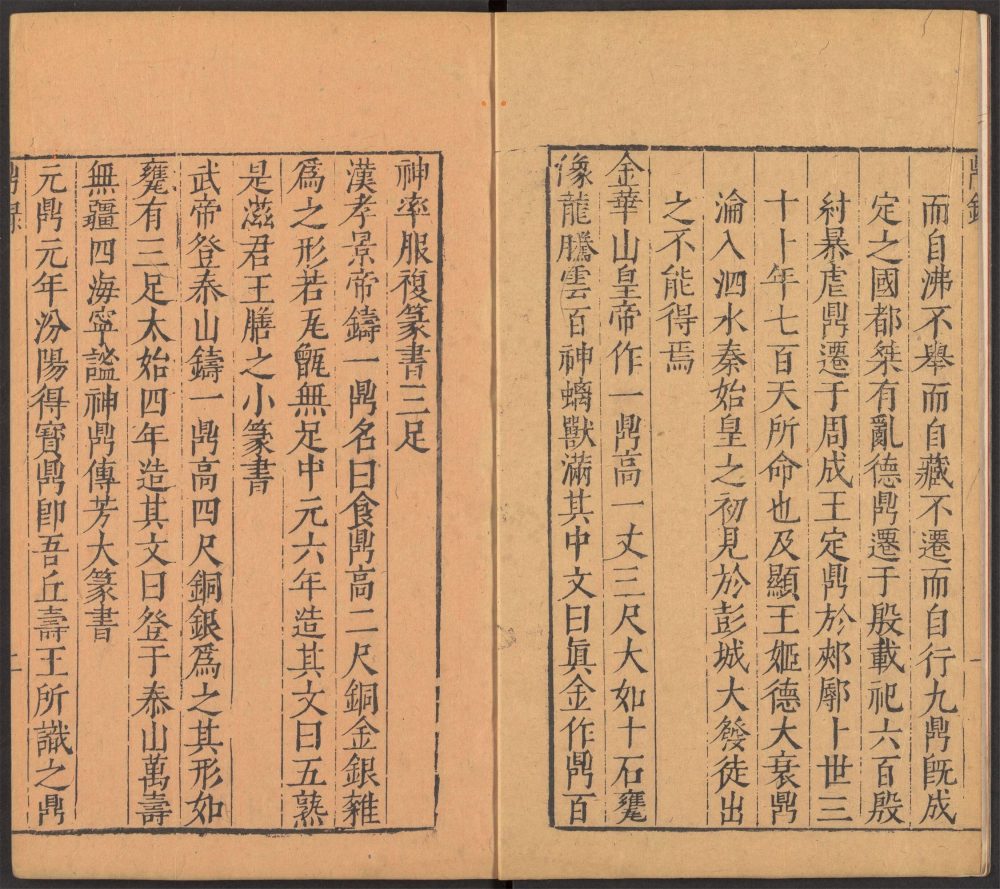 鼎錄
而自沸不舉而自藏不遷而自行九鼎既成
定之國都桀有亂德鼎遷于殷載祀六百殷
紂暴虐鼎遷于周成王定鼎於郟鄏卜世三
十卜年七百天所命也及顯王姬德大衰鼎
淪入泗水秦始皇之初見於彭城大發徒出
之不能得焉
金華山皇帝作一鼎高一丈三尺大如十石甕
像龍騰雲百神螭獸滿其中文曰眞金作鼎百
神率服複篆書三足
漢孝景帝鑄一鼎名曰食鼎高二尺銅金銀雜
爲之形若瓦甑無足中元六年造其文曰五熟
是滋君王膳之小篆書
武帝登泰山鑄一鼎高四尺銅銀爲之其形如
甕有三足太始四年造其文曰登于泰山萬壽
無疆四海寧謐神鼎傳芳大篆書
元鼎元年汾陽得寶鼎卽吾丘壽王所識之鼎
鼎錄
二